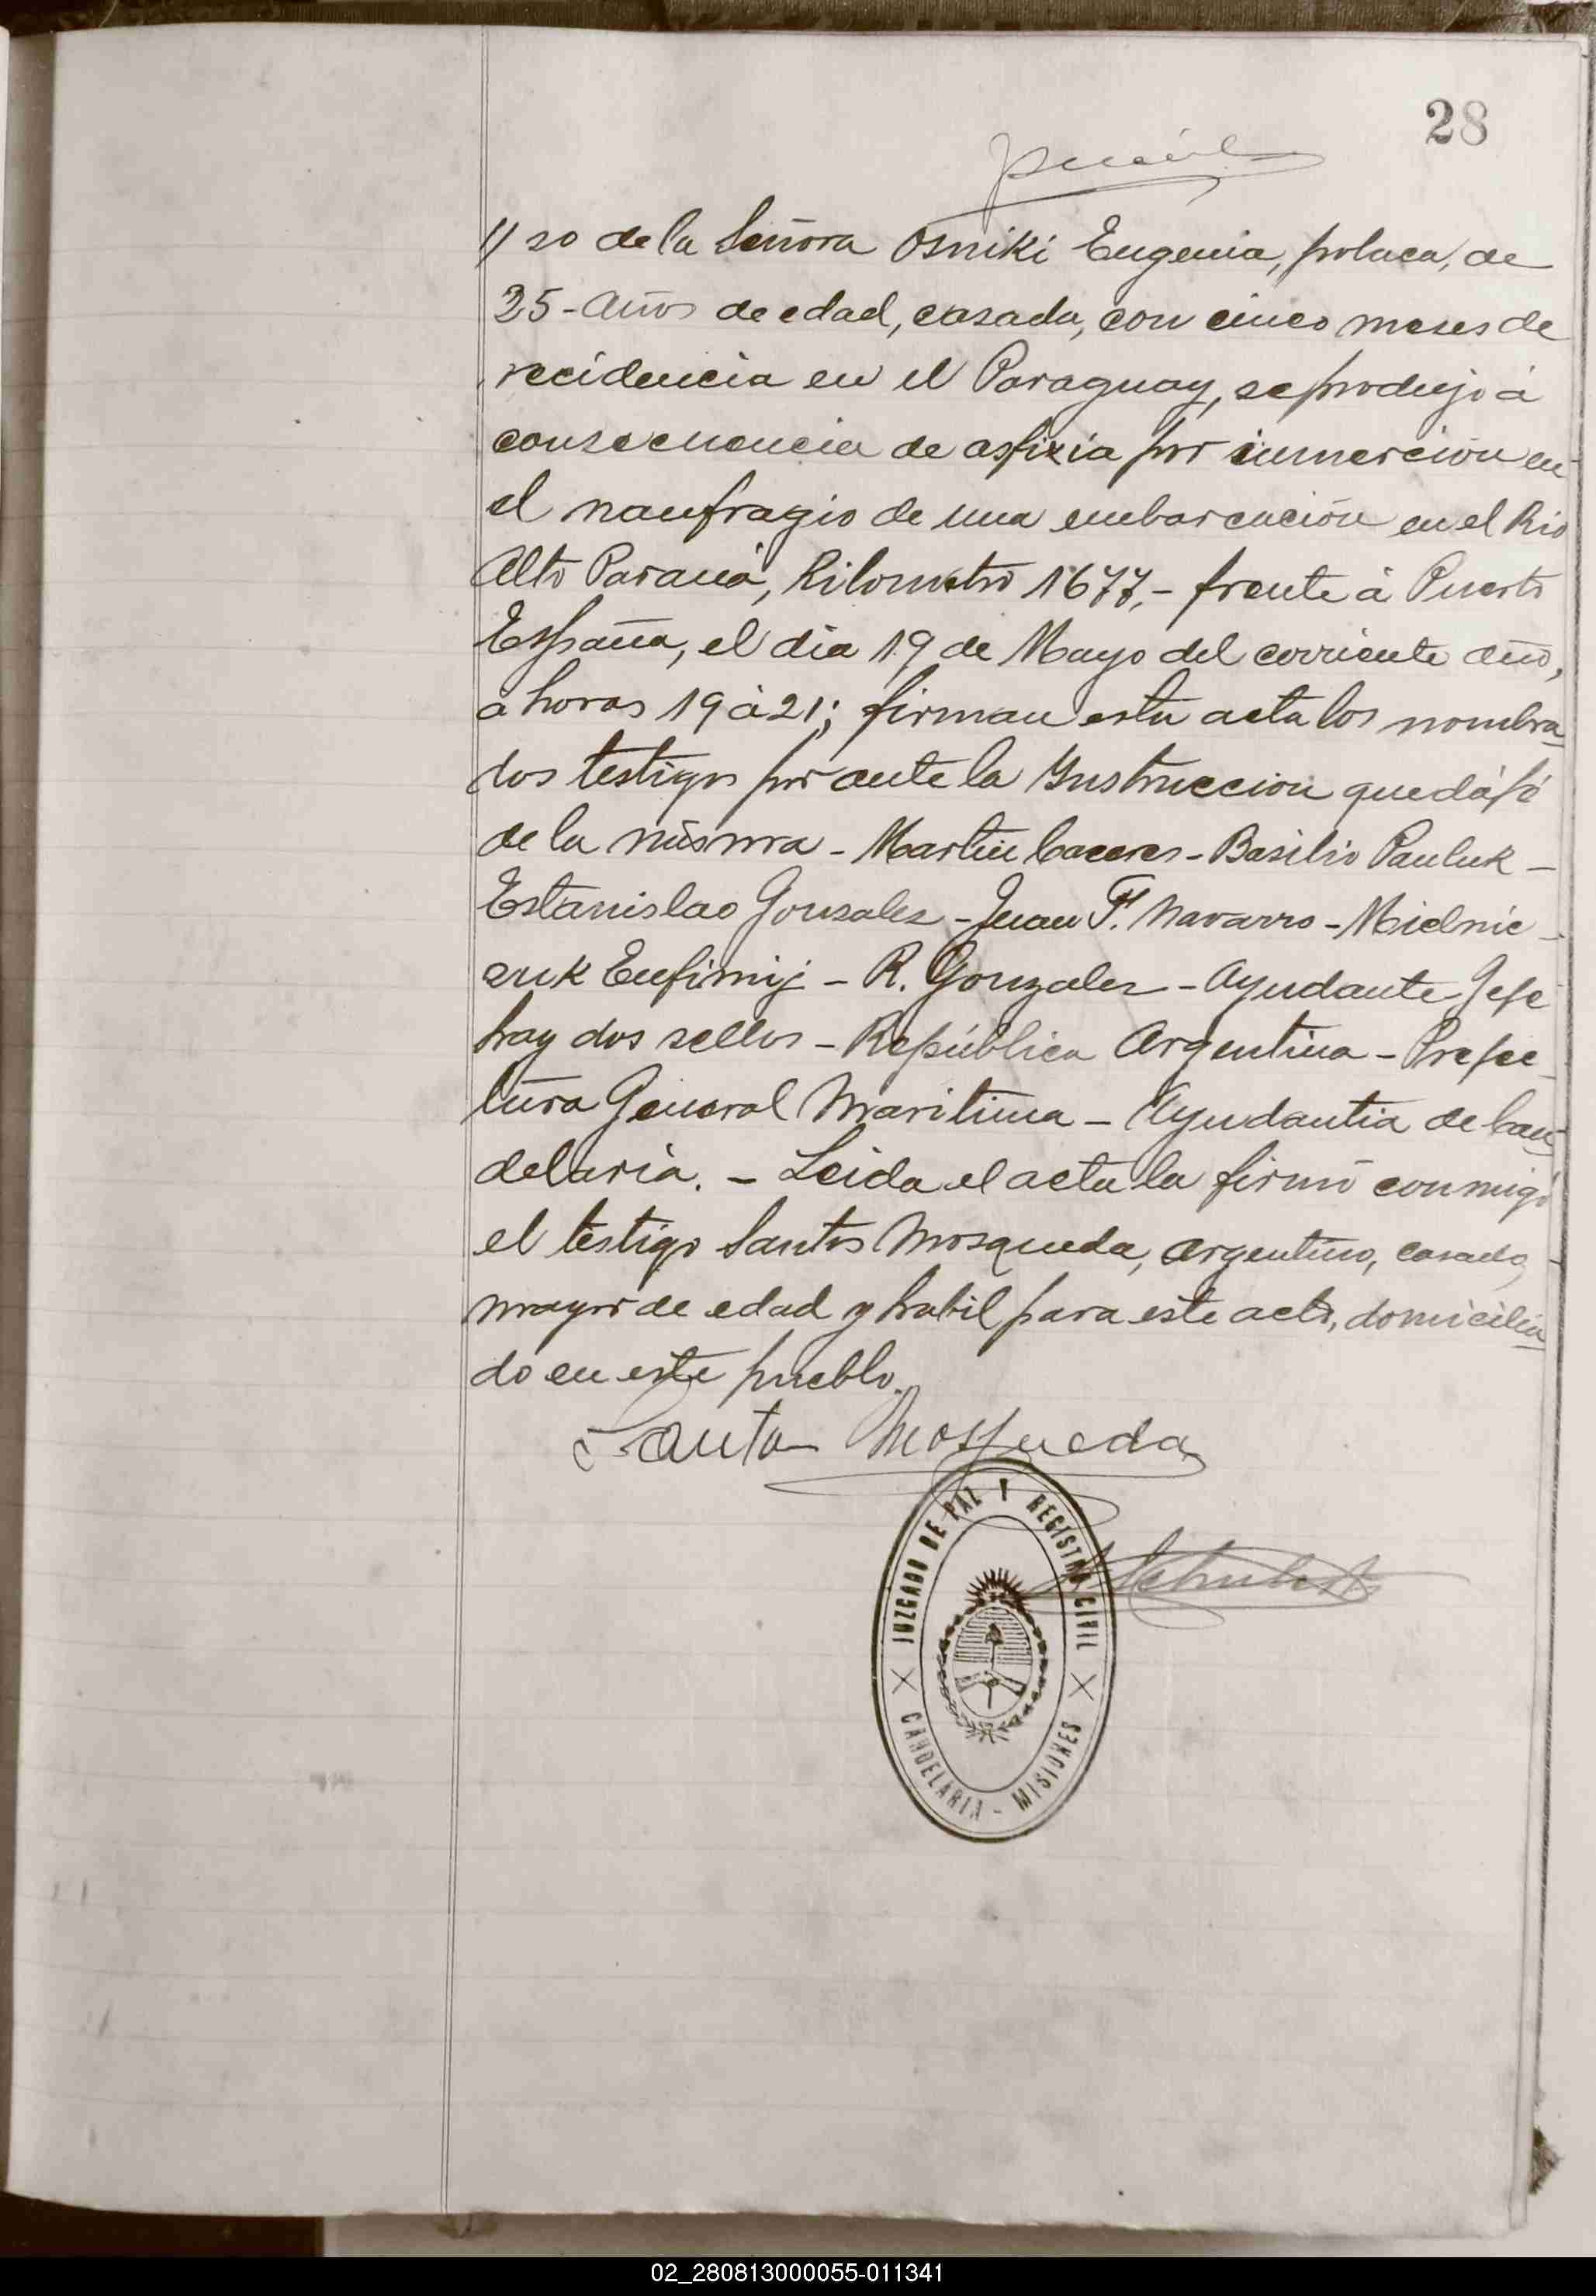 28
//so de la Señora Osniki Eugenia, polaca, de
25-años de edad, casada, con cinco meses de
recidencia en el Paraguay, se produjo á
consecuencia de asfixia por inmerción en
el naufragio de una embarcación en el Rio
Alto Paraná, Kilometro 1677,- frente á Puerto
España, el dia 19 de Mayo del corriente año,
a horas 19 á 21; firman esta acta los nombra
dos testigos por ante la Instruccion que dá fé
de la misma - Martin Caceres - Basilio Pauluk -
Estanislao Gonzales - Juan F. Navarro - Mielnic-
zuk Eufimij - R. Gonzalez - Ayudante Jefe
hay dos sellos - República Argentina - Prefec-
tura General Maritima - Ayudantia de Can-
delaria. - Leida el acta la firmó conmigo
el testigo Santos Mosqueda, argentino, casado,
mayor de edad y habil para este acto, domicilia
do en este pueblo.
Santos Mosqueda
JUZGADO DE PAZ Y REGISTRO CIVIL
CANDELARIA - MISIONES
02_280813000055-011341